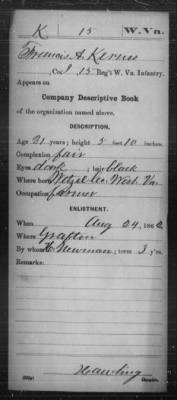 K 15 W.Va.
Francis A. Kerns
, Co. I 15 Reg't W. Va. Infantry.
Appears on
Company Descriptive Book
of the organization named above.
DESCRIPTION.
Age 21 years; height 5 feet 10 inches.
Complexion fair
Eyes dark ; hair black
Where born Wetzel Co. West. Va.
Occupation farmer
ENLISTMENT.
When Aug 24, 1862
Where Grafton
By whom Newman; term 3 y'rs.
Remarks:
Copyist.